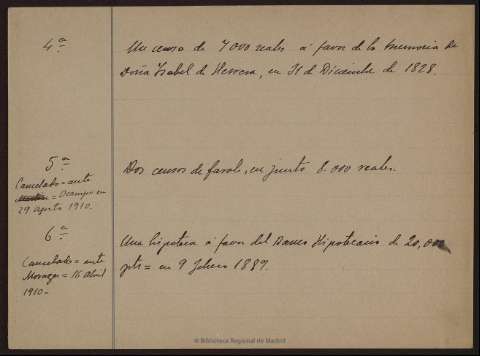 4ª
Un censo de 4000 reales á favor de la memoria de
Doña Ysabel de Herrera, en 31 de Diciembre de 1828.
5ª
Cancelado = ante
= Ocampo en
29 agosto 1910.
Dos censos de farol, en junto 8.000 reales.
6ª
Cancelado = ante
Moragas = 16 Abril
1910 -
Una hipoteca á favor del Banco Hipotecario de 20,000
pts = en 9 Febrero 1889.
© Biblioteca Regional de Madrid